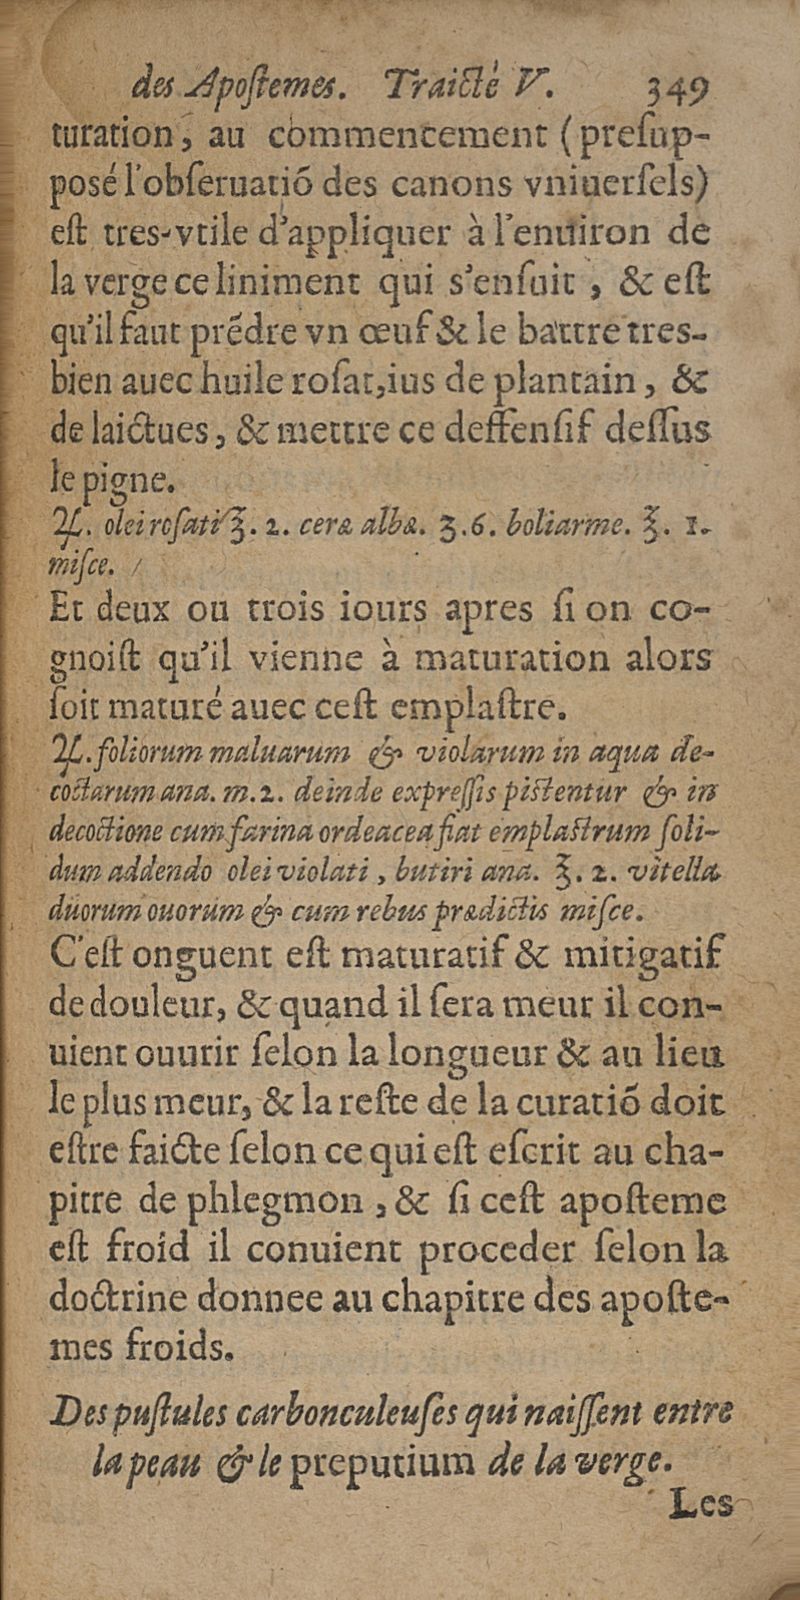 des Apoſtemes. Traicté V. 349
turation, au commencement (preſup-
poſé l'obſeruatiõ des canons vniuerſels)
eſt tres-vtile d'appliquer à l'enuiron de
la verge ce liniment qui s'enſuit, & eſt
qu'il faut prẽdre vn œuf & le battre tres-
bien auec huile roſat, ius de plantain, &
de laictues, & mettre ce deffenſif deſſus
le pigne.
♃. olei roſati ℥. 2. ceræ albæ. ʒ. 6. boliarme. ℥. 1.
miſce.
Et deux ou trois iours apres ſi on co-
gnoiſt qu'il vienne à maturation alors
ſoit maturé auec ceſt emplaſtre.
♃. foliorum maluarum & violarum in aqua de-
coctarum ana. m. 2. deinde expreſſis piſtentur & in
decoctione cum farina ordeacea fiat emplaſtrum ſoli-
dum addendo olei violati, butiri ana. ℥. 2. vitella
duorum ouorum & cum rebus prædictis miſce.
C'eſt onguent eſt maturatif & mitigatif
de douleur, & quand il ſera meur il con-
uient ouurir ſelon la longueur & au lieu
le plus meur, & la reſte de la curatiõ doit
eſtre faicte ſelon ce qui eſt eſcrit au cha-
pitre de phlegmon, & ſi ceſt apoſteme
eſt froid il conuient proceder ſelon la
doctrine donnee au chapitre des apoſte-
mes froids.
Des puſtules carbonculeuſes qui naiſſent entre
la peau & le preputium de la verge.
Les